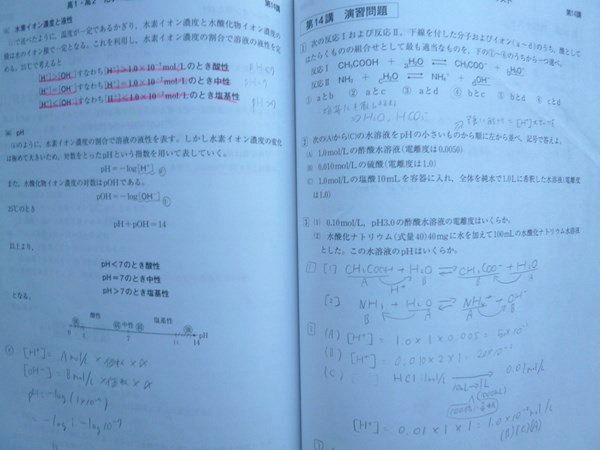 高1・高2
第14講
水素イオン濃度と液性
で述べたように，温度が一定であるかぎり，水素イオン濃度と水酸化物イオン濃度の
積は水のイオン積で一定となる。これを利用し，水素イオン濃度の割合で溶液の液性を定
める。25℃で考えると
[H⁺]>[OH⁻]すなわち[H⁺]>1.0×10⁻⁷mol/Lのとき酸性
[H⁺]=[OH⁻]すなわち[H⁺]=1.0×10⁻⁷mol/Lのとき中性
[H⁺]<[OH⁻]すなわち[H⁺]<1.0×10⁻⁷mol/Lのとき塩基性
pH
のように，水素イオン濃度の割合で溶液の液性を表す。しかし水素イオン濃度の変化
は極めて大きいため，対数をとったpHという指数を用いて表していく。
pH=-log[H⁺]
また，水酸化物イオン濃度の対数はpOHである。
pOH=-log[OH⁻]
25℃のとき
pH+pOH=14
以上より，
pH<7のとき酸性
pH=7のとき中性
pH>7のとき塩基性
となる。
酸性 中性 塩基性
0 7 11 14 pH
[H⁺] = A mol/L × 価数 × α
[OH⁻] = B mol/L × 価数 × α
第14講 演習問題
1 次の反応Ⅰおよび反応Ⅱ，下線を付した分子およびイオン(a～d)のうち，酸として
はたらくものの組合せとして最も適当なものを，下の①～⑥のうちから一つ選べ。
反応Ⅰ CH₃COOH + aH₂O ⇄ CH₃COO⁻ + bH₃O⁺
反応Ⅱ NH₃ + cH₂O ⇄ NH₄⁺ + dOH⁻
① aとb ② aとc ③ aとd ④ bとc ⑤ bとd ⑥ cとd
2 次の(A)から(C)の水溶液をpHの小さいものから順に左から並べ，記号で答えよ。
(A) 1.0mol/Lの酢酸水溶液(電離度は0.0050)
(B) 0.010mol/Lの硫酸(電離度は1.0)
(C) 1.0mol/Lの塩酸10mLを容器に入れ，全体を純水で1.0Lに希釈した水溶液(電離度
は1.0)
3 (1) 0.10mol/L，pH3.0の酢酸水溶液の電離度はいくらか。
(2) 水酸化ナトリウム(式量40)40mgに水を加えて100mLの水酸化ナトリウム水溶液
とした。この水溶液のpHはいくらか。
1 [1] CH₃COOH + H₂O ⇄ CH₃COO⁻ + H₃O⁺
A B H⁺ B A
[2] NH₃ + H₂O ⇄ NH₄⁺ + OH⁻
B A A B
2 (A) [H⁺] = 1.0 × 1 × 0.005 = 5×10⁻³
(B) [H⁺] = 0.010×2×1 = 20×10⁻³
(C) HCl 1mol/L → 0.01mol/L
10mL→1L
[H⁺] = 0.01 × 1 × 1 = 1.0×10⁻²mol/L
(B)(C)(A)